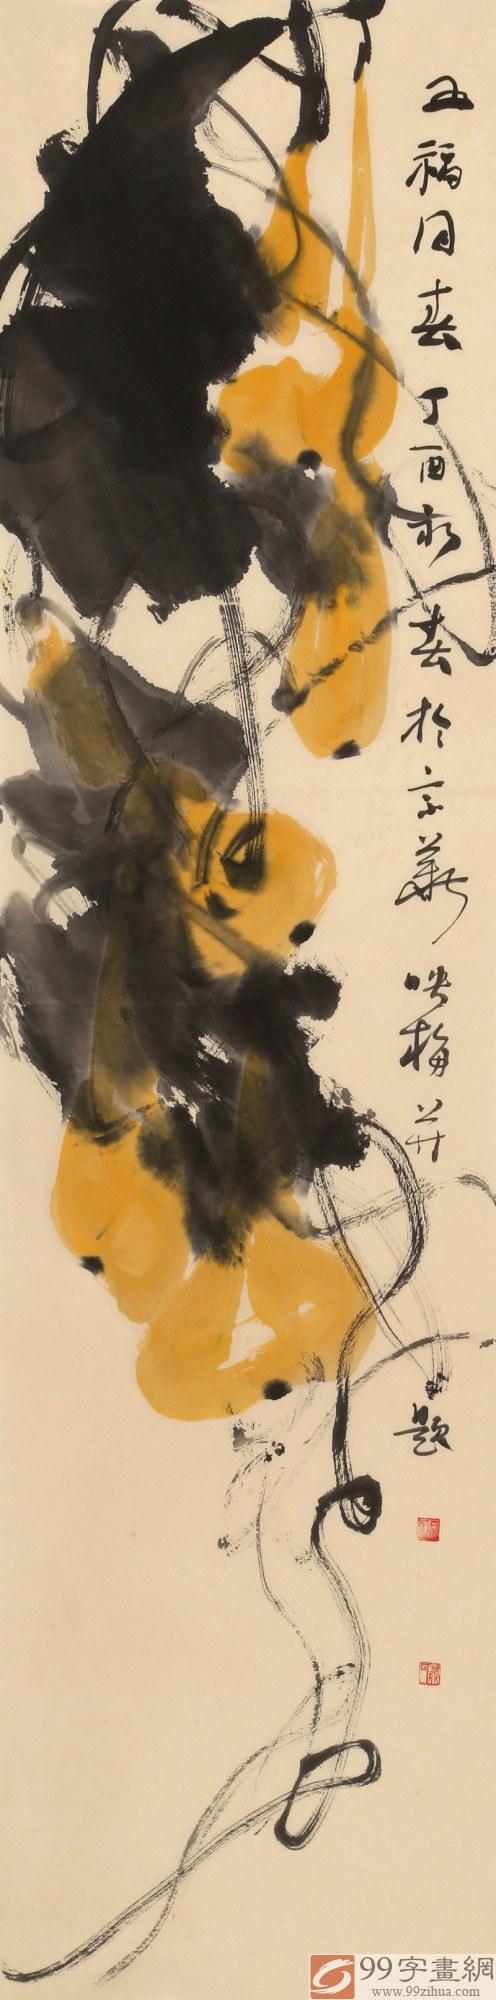 五福同春丁酉初春於京華映梅并題
99字畫網
www.99zihua.com